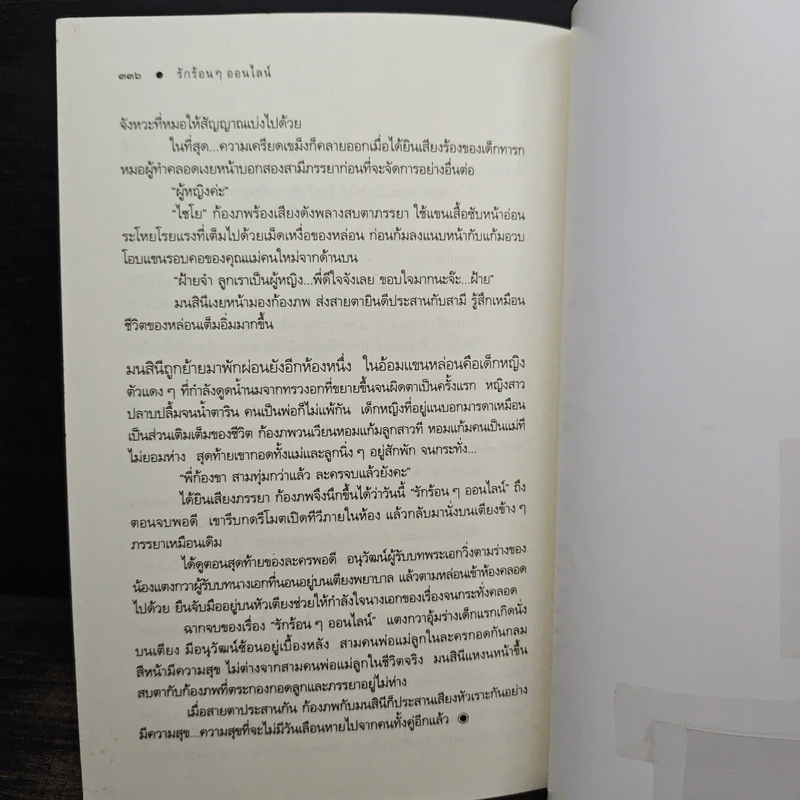 ๓๓๖ ● รักร้อนๆ ออนไลน์
จังหวะที่หมอให้สัญญาณเบ่งไปด้วย
ในที่สุด...ความเครียดเขม็งก็คลายออกเมื่อได้ยินเสียงร้องของเด็กทารก
หมอผู้ทำคลอดเงยหน้าบอกสองสามีภรรยาก่อนที่จะจัดการอย่างอื่นต่อ
“ผู้หญิงค่ะ”
“ไชโย” ก้องภพร้องเสียงดังพลางสบตาภรรยา ใช้แขนเสื้อซับหน้าอ่อน
ระโหยโรยแรงที่เต็มไปด้วยเม็ดเหงื่อของหล่อน ก่อนก้มลงแนบหน้ากับแก้มอวบ
โอบแขนรอบคอของคุณแม่คนใหม่จากด้านบน
“ฝ้ายจ๋า ลูกเราเป็นผู้หญิง...พี่ดีใจจังเลย ขอบใจมากนะจ๊ะ...ฝ้าย”
มนสินีเงยหน้ามองก้องภพ ส่งสายตายินดีประสานกับสามี รู้สึกเหมือน
ชีวิตของหล่อนเต็มอิ่มมากขึ้น
มนสินีถูกย้ายมาพักผ่อนยังอีกห้องหนึ่ง ในอ้อมแขนหล่อนคือเด็กหญิง
ตัวแดงๆ ที่กำลังดูดน้ำนมจากทรวงอกที่ขยายขึ้นจนผิดตาเป็นครั้งแรก หญิงสาว
ปลาบปลื้มจนน้ำตาริน คนเป็นพ่อก็ไม่แพ้กัน เด็กหญิงที่อยู่แนบอกมารดาเหมือน
เป็นส่วนเติมเต็มของชีวิต ก้องภพวนเวียนหอมแก้มลูกสาวที หอมแก้มคนเป็นแม่ที
ไม่ยอมห่าง สุดท้ายเขากอดทั้งแม่และลูกนิ่งๆ อยู่สักพัก จนกระทั่ง...
“พี่ก้องขา สามทุ่มกว่าแล้ว ละครจบแล้วยังคะ”
ได้ยินเสียงภรรยา ก้องภพจึงนึกขึ้นได้ว่าวันนี้ “รักร้อนๆ ออนไลน์” ถึง
ตอนจบพอดี เขารีบกดรีโมตเปิดทีวีภายในห้อง แล้วกลับมานั่งบนเตียงข้างๆ
ภรรยาเหมือนเดิม
ได้ดูตอนสุดท้ายของละครพอดี อนุวัฒน์ผู้รับบทพระเอกวิ่งตามร่างของ
น้องแตงกวาผู้รับบทนางเอกที่นอนอยู่บนเตียงพยาบาล แล้วตามหล่อนเข้าห้องคลอด
ไปด้วย ยืนจับมืออยู่บนหัวเตียงช่วยให้กำลังใจนางเอกของเรื่องจนกระทั่งคลอด
ฉากจบของเรื่อง “รักร้อนๆ ออนไลน์” แตงกวาอุ้มร่างเด็กแรกเกิดนั่ง
บนเตียง มีอนุวัฒน์ซ้อนอยู่เบื้องหลัง สามคนพ่อแม่ลูกในละครกอดกันกลม
สีหน้ามีความสุข ไม่ต่างจากสามคนพ่อแม่ลูกในชีวิตจริง มนสินีแหงนหน้าขึ้น
สบตากับก้องภพที่ตระกองกอดลูกและภรรยาอยู่ไม่ห่าง
เมื่อสายตาประสานกัน ก้องภพกับมนสินีก็ประสานเสียงหัวเราะกันอย่าง
มีความสุข...ความสุขที่จะไม่มีวันเลือนหายไปจากคนทั้งคู่อีกแล้ว ●